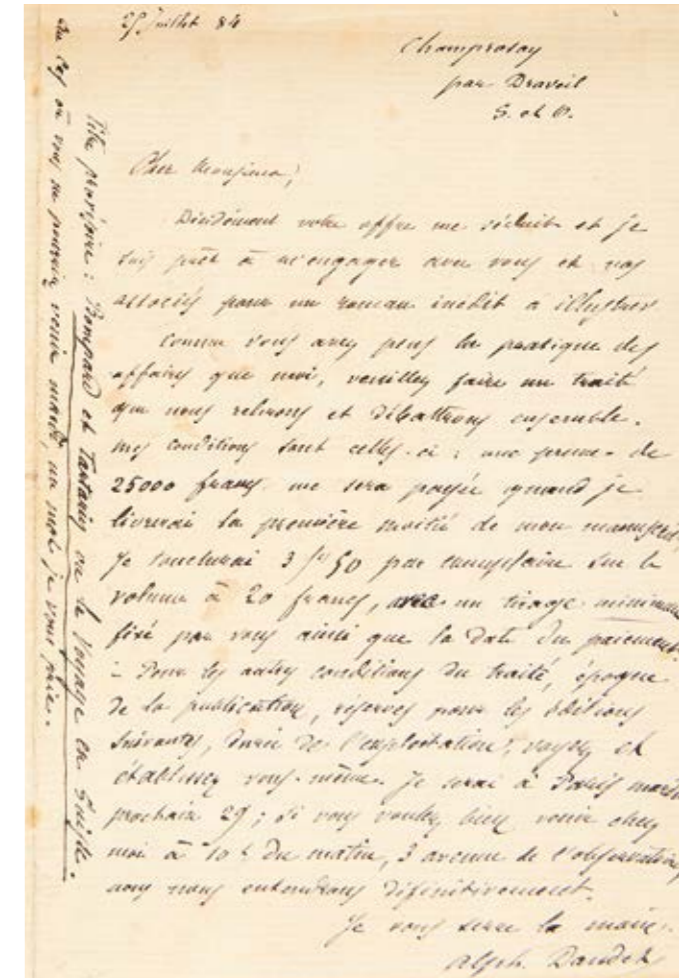 25 Juillet 84
Champrosay
par Draveil
S. et O.
Cher Monsieur,
Décidément votre offre me séduit et je
suis prêt à m'engager avec vous et vos
associés pour un roman inédit à illustrer
Comme vous avez plus la pratique des
affaires que moi, veuillez faire un traité
que nous relirons et débattrons ensemble.
Mes conditions sont celles-ci : une prime de
25000 francs me sera payée quand je
livrerai la première moitié de mon manuscrit.
Je toucherai 3 fr 50 par exemplaire sur le
volume à 20 francs, avec un tirage minimum
fixé par vous ainsi que la date du paiement.
- Pour les autres conditions du traité, époque
de la publication, réserves pour les éditions
suivantes, durée de l'exploitation, voyez et
établissez vous-même. Je serai à Paris mardi
prochain 29 ; si vous voulez bien venir chez
moi à 10 h du matin, 3 avenue de l'observatoire,
nous nous entendrons définitivement.
Je vous serre la main.
Alph. Daudet
Titre provisoire : Bompard et Tartarin ou le Voyage en Suisse.
Au cas où vous ne pourriez venir mardi, un mot je vous prie.